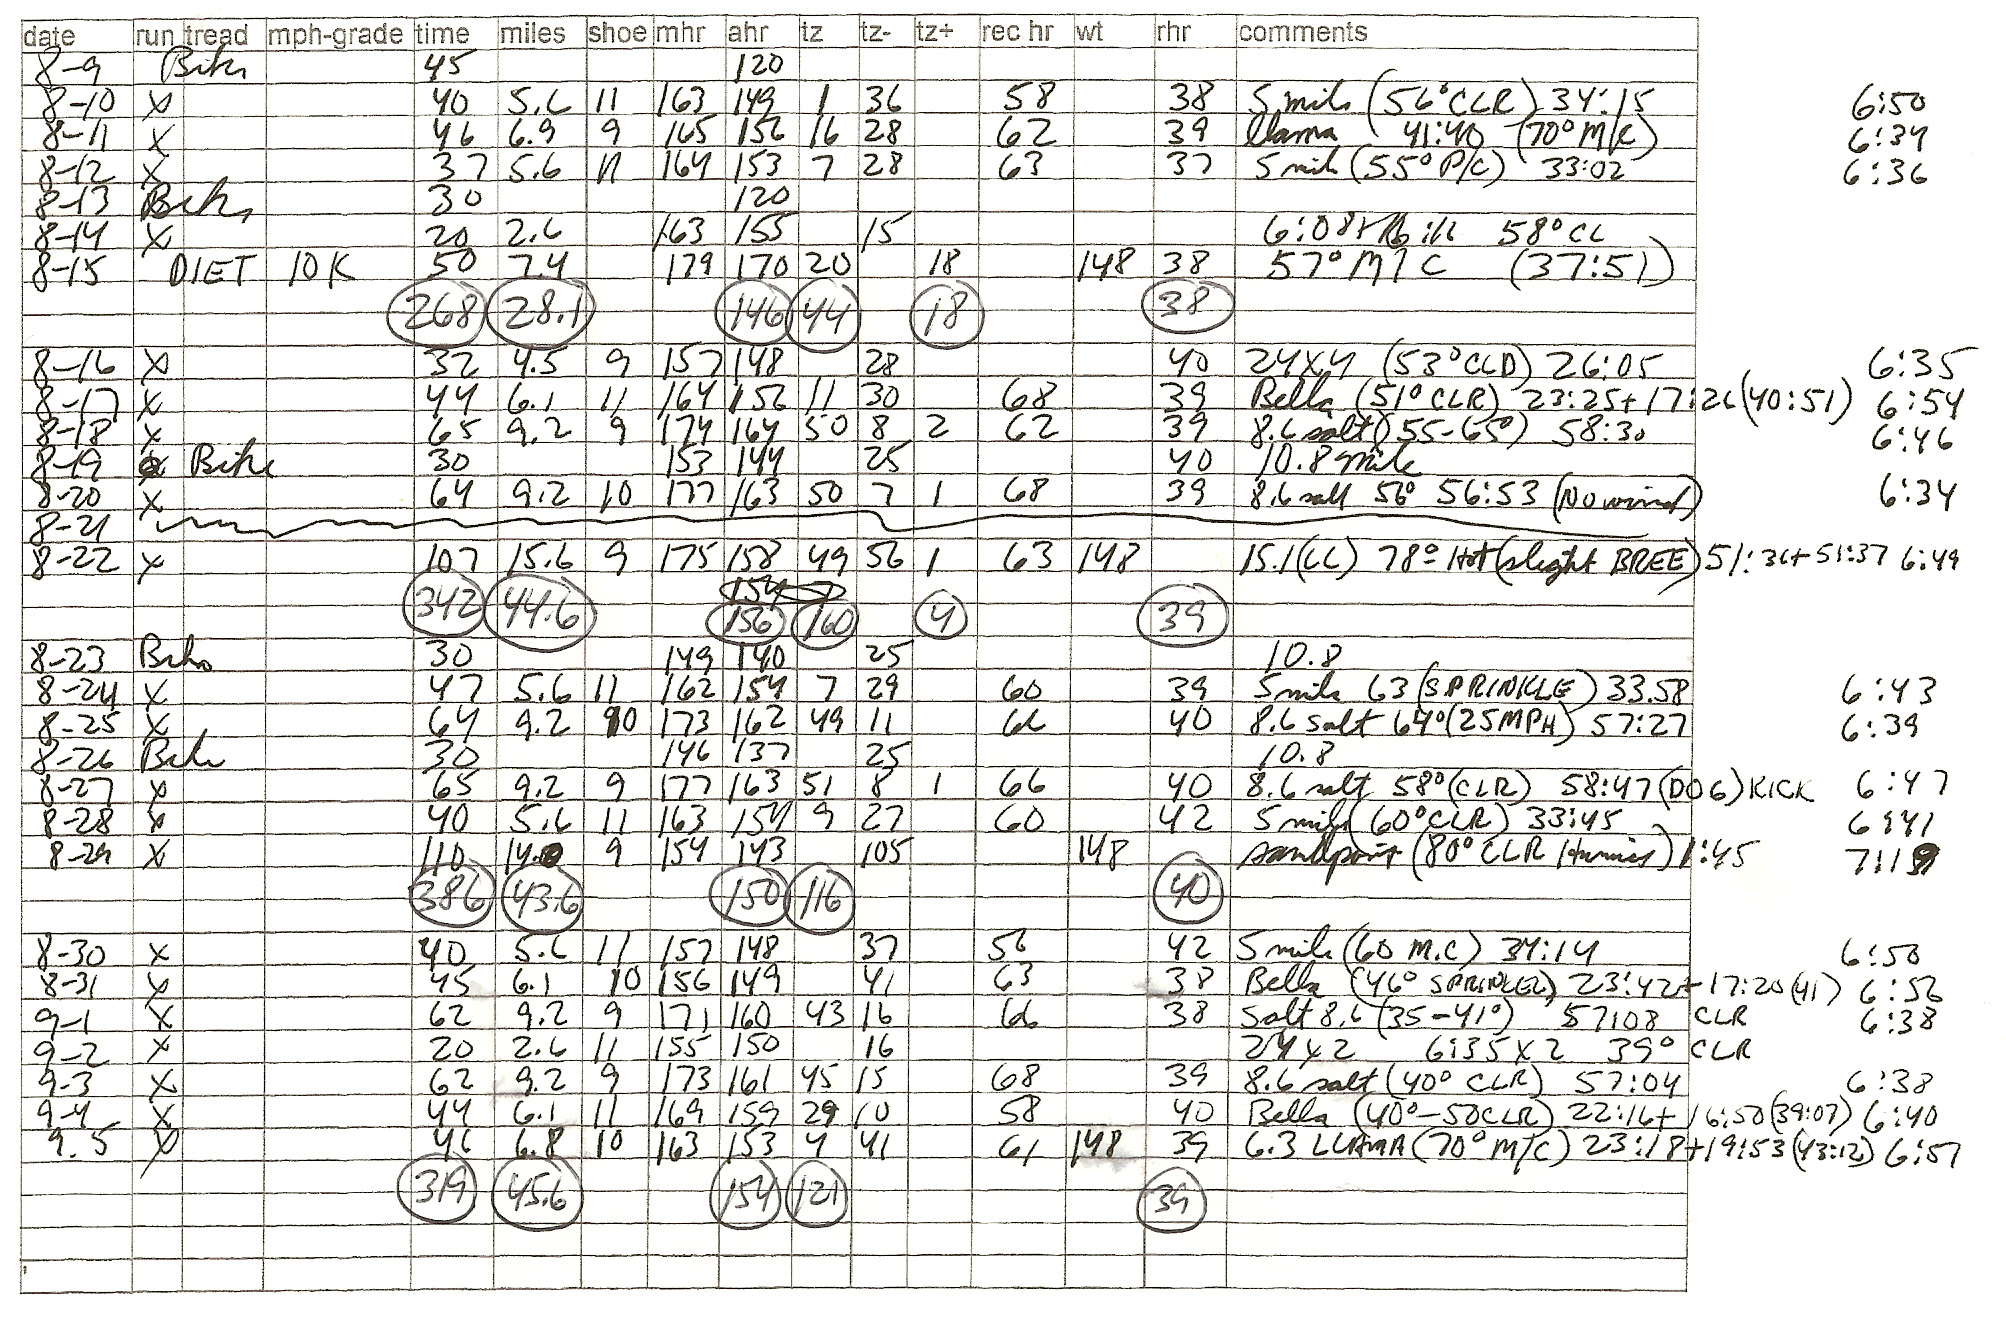 date run tread mph-grade time miles shoe mhr ahr tz tz- tz+ rec hr wt rhr comments
8-9 Bike 45 120
8-10 x 40 5.6 11 163 149 1 36 58 38 5 mile (56° CLR) 34:15 6:50
8-11 x 46 6.9 9 165 156 16 28 62 39 llama 41:40 (70° M/C) 6:34
8-12 x 37 5.6 11 164 153 7 28 63 37 5 mile (55° P/C) 33:02 6:36
8-13 Bike 30 120
8-14 x 20 2.6 163 155 15 6:08+ 58° CL
8-15 DIET 10K 50 7.4 179 170 20 18 148 38 57° M/C (37:51)
268 28.1 146 44 18 38
8-16 x 32 4.5 9 157 148 28 40 24X4 (53° CLD) 26:05 6:35
8-17 x 44 6.1 11 164 156 11 30 68 39 Bella (51° CLR) 23:25+17:26 (40:51) 6:54
8-18 x 65 9.2 9 174 164 50 8 2 62 39 8.6 salt (55-65°) 58:30 6:46
8-19 Bike 30 153 144 25 40 10.8 mile
8-20 x 64 9.2 10 177 163 50 7 1 68 39 8.6 salt 56° 56:53 (No wind) 6:34
8-21
8-22 x 107 15.6 9 175 158 49 56 1 63 148 15.1 (LL) 78° Hot (slight BREE) 51:36+51:37 6:49
154
342 44.6 156 160 4 39
8-23 Bike 30 149 140 25 10.8
8-24 x 47 5.6 11 162 154 7 29 60 39 5 mile 63 (SPRINKLE) 33.58 6:43
8-25 x 64 9.2 10 173 162 49 11 66 40 8.6 salt 64° (25MPH) 57:27 6:39
8-26 Bike 30 146 137 25 10.8
8-27 x 65 9.2 9 177 163 51 8 1 66 40 8.6 salt 58° (CLR) 58:47 (DOG) KICK 6:47
8-28 x 40 5.6 11 163 154 9 27 60 42 5 mile (60° CLR) 33:45 6:41
8-29 x 110 14.0 9 154 143 105 148 sandpoint (80° CLR Humid) 1:45 7:19
386 43.6 150 116 40
8-30 x 40 5.6 11 157 148 37 56 42 5 mile (60 M.C) 34:14 6:50
8-31 x 45 6.1 10 156 149 41 63 38 Bella (46° SPRINKLES) 23:42+17:20 (41) 6:56
9-1 x 62 9.2 9 171 160 43 16 66 38 Salt 8.6 (35-41°) 57:08 CLR 6:38
9-2 x 20 2.6 11 155 150 16 24x2 6:35x2 39° CLR
9-3 x 62 9.2 9 173 161 45 15 68 39 8.6 salt (40° CLR) 57:04 6:38
9-4 x 44 6.1 11 169 159 29 10 58 40 Bella (40°-50 CLR) 22:16+16:50 (39:07) 6:40
9.5 x 46 6.8 10 163 153 4 41 61 148 39 6.3 LLAMA (70° M/C) 23:18+19:53 (43:12) 6:51
319 45.6 154 121 39